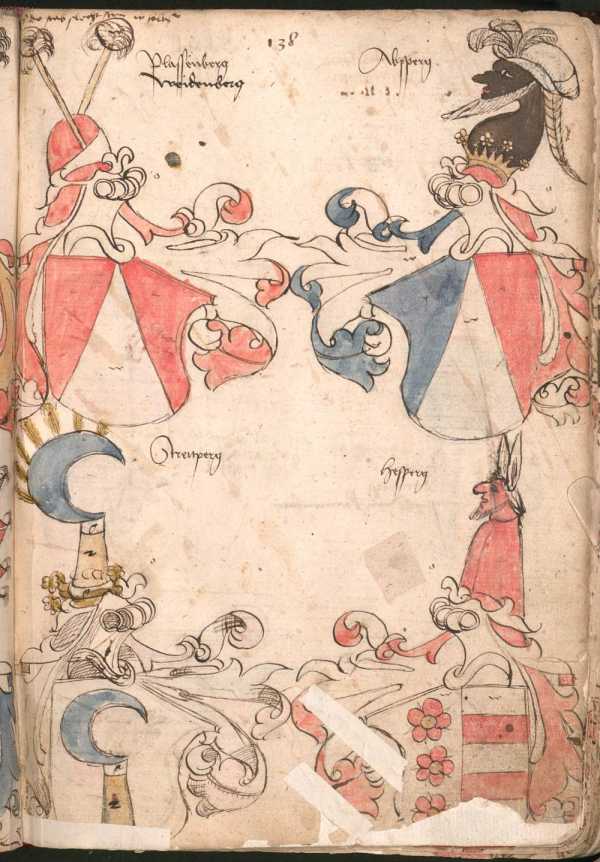 138
Plassenberg
Weidenberg
Absperg
Streitperg
Hesperg